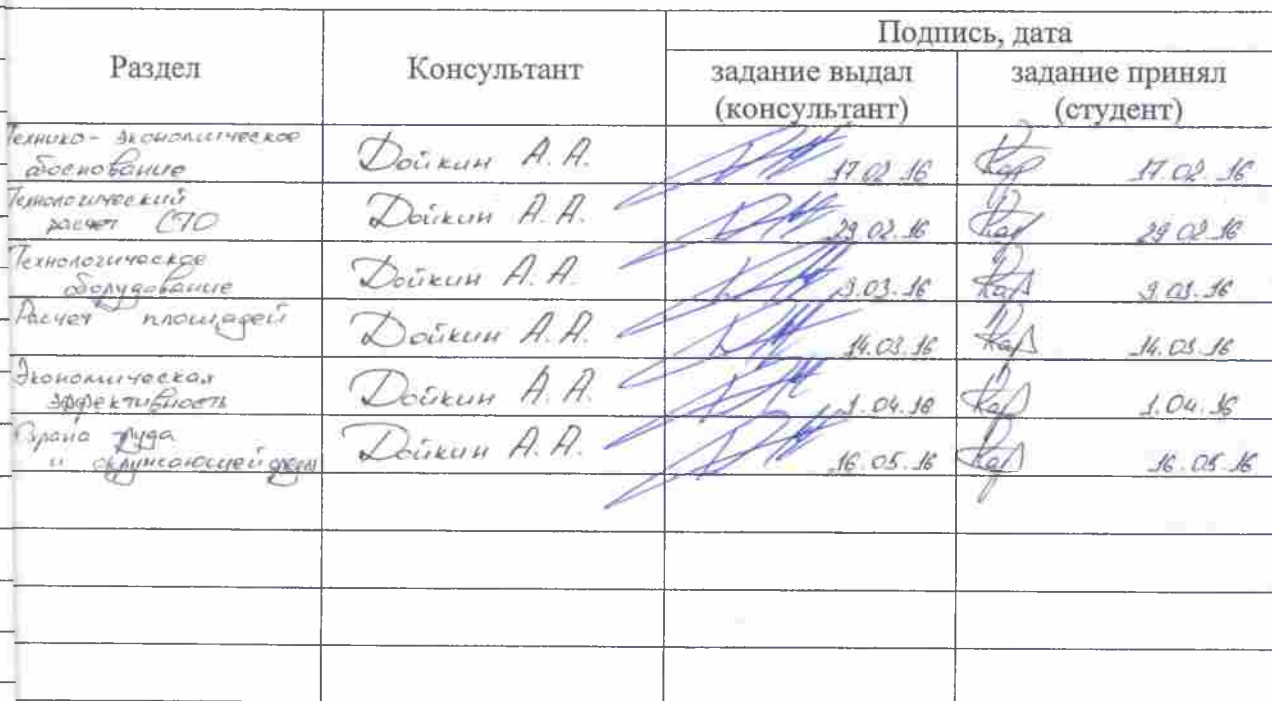 Раздел
Консультант
Подпись, дата
задание выдал
(консультант)
задание принял
(студент)
Технико-экономическое
обоснование
Дойкин А.А.
17.02.16
Кар
17.02.16
Технологический
расчет СТО
Дойкин А.А.
29.02.16
Кар
29.02.16
Технологическое
оборудование
Дойкин А.А.
9.03.16
Кар
9.03.16
Расчет площадей
Дойкин А.А.
14.03.16
Кар
14.03.16
Экономическая
эффективность
Дойкин А.А.
1.04.16
Кар
1.04.16
Охрана труда
и окружающей среды
Дойкин А.А.
16.05.16
Кар
16.05.16